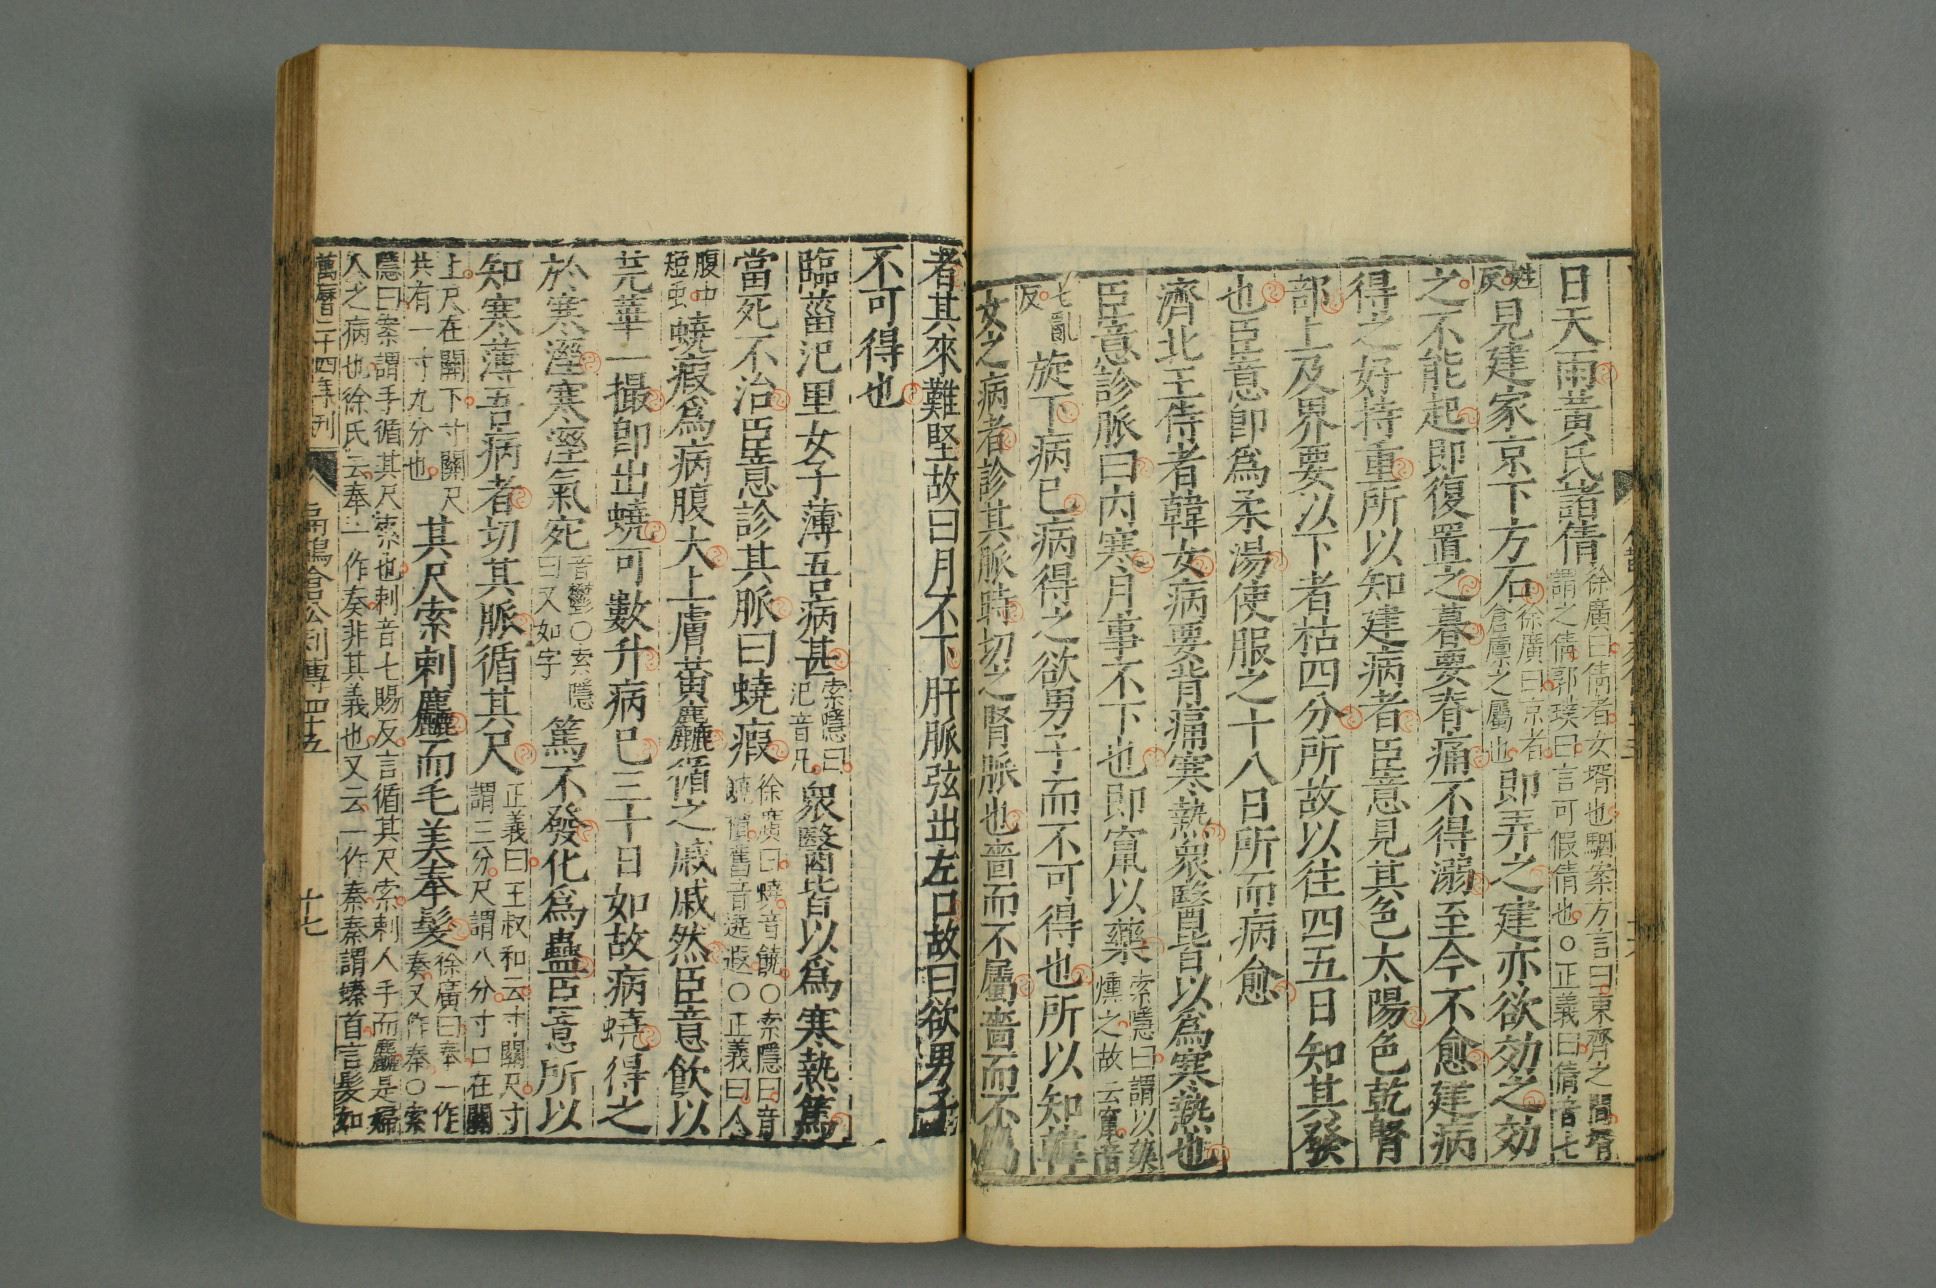 日天雨黄氏諸倩徐廣曰倩者女壻也駰案方言曰東齊之間壻謂之倩郭璞曰言可假倩也○正義曰倩音七
姓反見建家京下方石徐廣曰京者倉廩之屬也即弄之建亦欲効之効
之不能起即復置之暮要脊痛不得溺至今不愈建病
得之好持重所以知建病者臣意見其色太陽色乾腎
部上及界要以下者枯四分所故以往四五日知其發
也臣意即爲柔湯使服之十八日所而病愈
濟北王侍者韓女病要背痛寒熱衆醫皆以爲寒熱也
臣意診脈曰内寒月事不下也即竄以藥索隱曰謂以藥燻之故云竄音
七亂反旋下病已病得之欲男子而不可得也所以知韓
女之病者診其脈時切之腎脈也嗇而不屬嗇而不屬
者其來難堅故曰月不下肝脈弦出左口故曰欲男子
不可得也
臨菑氾里女子薄吾病甚索隱曰氾音凡衆醫皆以爲寒熱篤
當死不治臣意診其脈曰蟯瘕徐廣曰蟯音饒○索隱曰音饒瘕舊音遶遐○正義曰人
腹中短蟲蟯瘕爲病腹大上膚黃麤循之戚戚然臣意飮以
芫華一撮即出蟯可數升病已三十日如故病蟯得之
於寒溼寒溼氣宛音鬱○索隱曰又如字篤不發化爲蟲臣意所以
知寒薄吾病者切其脈循其尺正義曰王叔和云寸關尺寸謂三分尺謂八分寸口在關
上尺在關下寸關尺共有一寸九分也其尺索刺麤而毛美奉髮徐廣曰奉一作奏又作秦○索
隱曰案謂手循其尺索也刺音七賜反言循其尺索刺人手而麤是婦
人之病也徐氏云奉一作奏非其義也又云一作秦秦謂螓首言髮如
萬曆二十四年刊
扁鵲倉公列傳四十五
十七